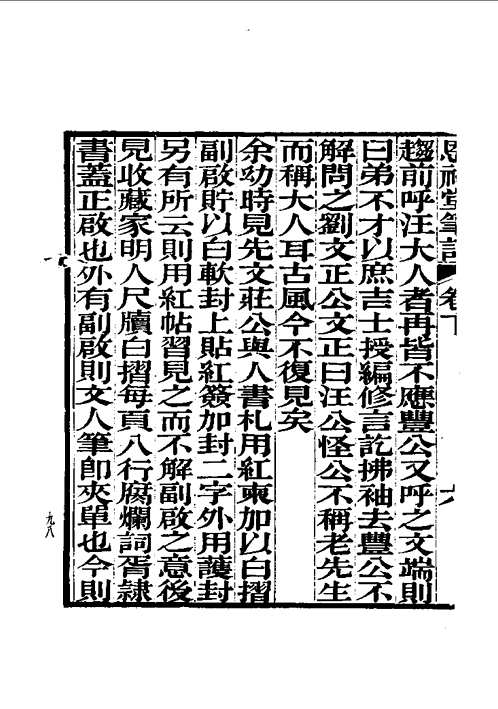 思補堂筆記 卷下 六
趨前呼汪大人者再皆不應豐公又呼之文端則
曰弟不才以庶吉士授編修言訖拂袖去豐公不
解問之劉文正公文正曰汪公怪公不稱老先生
而稱大人耳古風今不復見矣
余幼時見先文莊公與人書札用紅柬加以白摺
副啟貯以白軟封上貼紅簽加封二字外用護封
另有所云則用紅帖習見之而不解副啟之意後
見收藏家明人尺牘白摺每頁八行腐爛詞胥隷
書蓋正啟也外有副啟則文人筆卽夾單也今則
九八